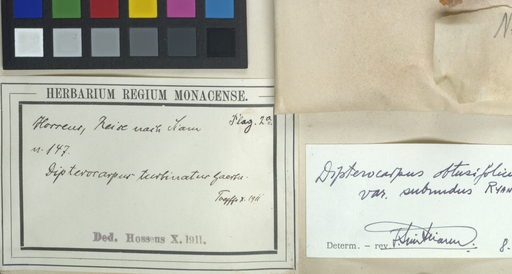 HERBARIUM REGIUM MONACENSE.
Hosseus, Reise nach Siam Plag. 2a
n. 147.
Dipterocarpus turbinatus Gaertn.
X. 1911
Ded. Hosseus X. 1911.
N
Dipterocarpus obtusifolius
var. subnudus RYAN
Determ. – rev.
8.